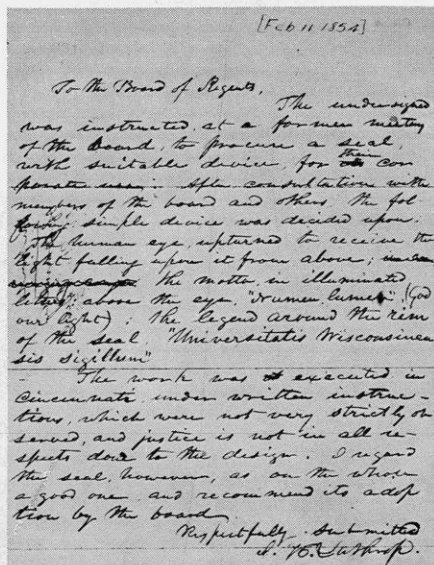 [Feb 11 1854]
To the Board of Regents,
The undersigned
was instructed, at a former meeting
of the Board, to procure a seal,
with suitable device, for their cor
porate use. After consultation with
members of the board and others the fol-
lowing simple device was decided upon.
The human eye, upturned to receive the
light falling upon it from above;
the motto, in illuminated
letters, above the eye, "Numen lumen" (God
our light); the legend around the rim
of the seal, "Universitatis Wisconsinen
sis sigillum"
The work was executed in
Cincinnati, under written instruc-
tions, which were not very strictly ob
served, and justice is not in all re-
spects done to the design. I regard
the seal, however, as on the whole
a good one, and recommend its adop
tion by the board
Respectfully submitted
J. H. Lathrop.